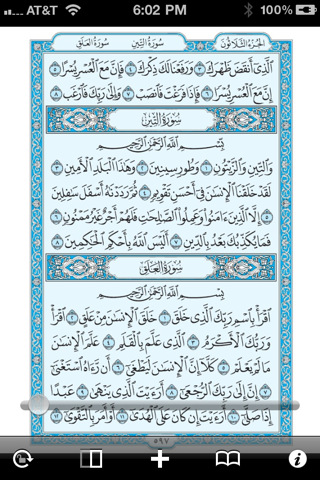 AT&T 6:02 PM 100%
سُورَةُ العَلَق سُورَةُ التِّين الجُزءُ الثَّلَاثُونَ
ٱلَّذِىٓ أَنقَضَ ظَهْرَكَ ٣ وَرَفَعْنَا لَكَ ذِكْرَكَ ٤ فَإِنَّ مَعَ ٱلْعُسْرِ يُسْرًا ٥
إِنَّ مَعَ ٱلْعُسْرِ يُسْرًا ٦ فَإِذَا فَرَغْتَ فَٱنصَبْ ٧ وَإِلَىٰ رَبِّكَ فَٱرْغَب ٨
سُورَةُ التِّينِ
بِسْمِ ٱللَّهِ ٱلرَّحْمَٰنِ ٱلرَّحِيمِ
وَٱلتِّينِ وَٱلزَّيْتُونِ ١ وَطُورِ سِينِينَ ٢ وَهَٰذَا ٱلْبَلَدِ ٱلْأَمِينِ ٣
لَقَدْ خَلَقْنَا ٱلْإِنسَٰنَ فِىٓ أَحْسَنِ تَقْوِيمٍ ٤ ثُمَّ رَدَدْنَٰهُ أَسْفَلَ سَٰفِلِينَ
٥ إِلَّا ٱلَّذِينَ ءَامَنُوا۟ وَعَمِلُوا۟ ٱلصَّٰلِحَٰتِ فَلَهُمْ أَجْرٌ غَيْرُ مَمْنُونٍ
٦ فَمَا يُكَذِّبُكَ بَعْدُ بِٱلدِّينِ ٧ أَلَيْسَ ٱللَّهُ بِأَحْكَمِ ٱلْحَٰكِمِينَ ٨
سُورَةُ العَلَقِ
بِسْمِ ٱللَّهِ ٱلرَّحْمَٰنِ ٱلرَّحِيمِ
ٱقْرَأْ بِٱسْمِ رَبِّكَ ٱلَّذِى خَلَقَ ١ خَلَقَ ٱلْإِنسَٰنَ مِنْ عَلَقٍ ٢ ٱقْرَأْ
وَرَبُّكَ ٱلْأَكْرَمُ ٣ ٱلَّذِى عَلَّمَ بِٱلْقَلَمِ ٤ عَلَّمَ ٱلْإِنسَٰنَ
مَا لَمْ يَعْلَمْ ٥ كَلَّآ إِنَّ ٱلْإِنسَٰنَ لَيَطْغَىٰٓ ٦ أَن رَّءَاهُ ٱسْتَغْنَىٰٓ
٧ إِنَّ إِلَىٰ رَبِّكَ ٱلرُّجْعَىٰٓ ٨ أَرَءَيْتَ ٱلَّذِى يَنْهَىٰ ٩ عَبْدًا
إِذَا صَلَّىٰٓ ١٠ أَرَءَيْتَ إِن كَانَ عَلَى ٱلْهُدَىٰٓ ١١ أَوْ أَمَرَ بِٱلتَّقْوَىٰٓ ١٢
٥٩٧